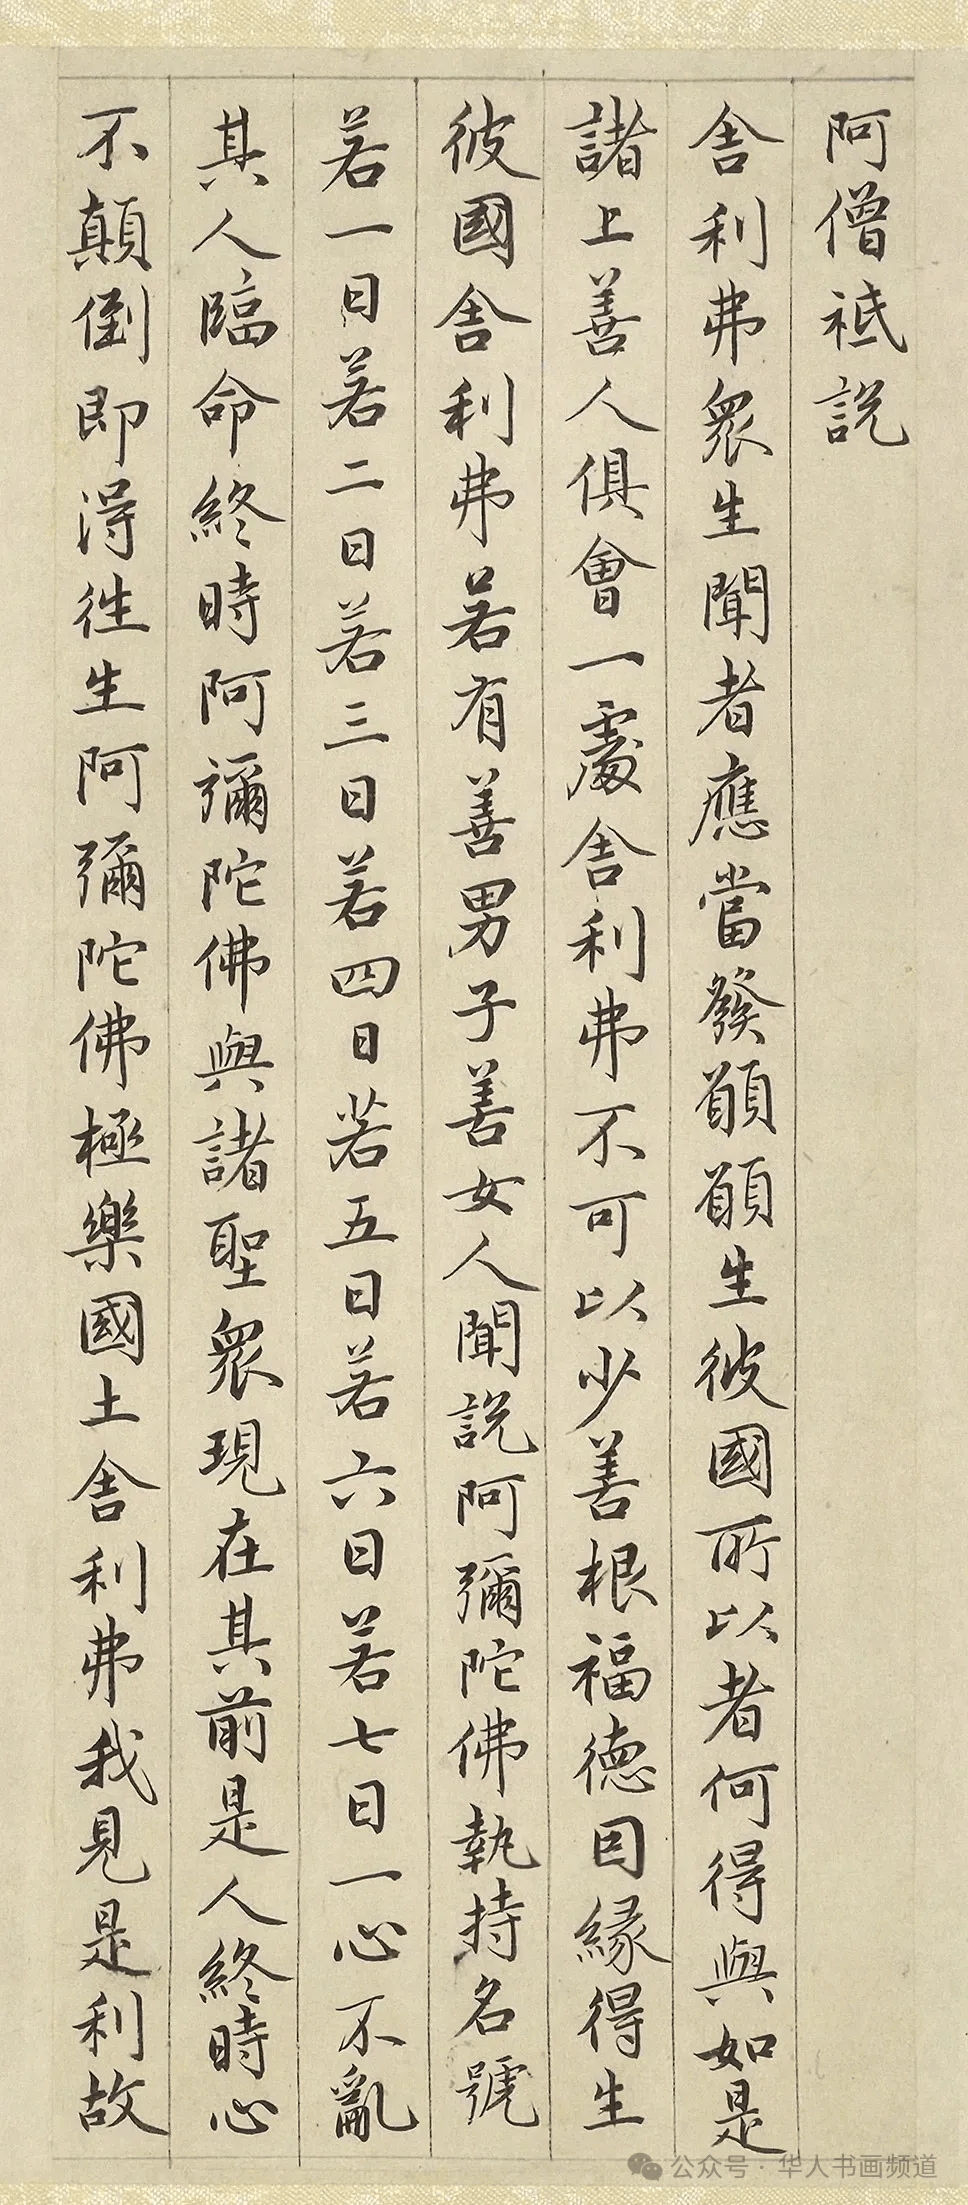 阿僧祇說
舍利弗眾生聞者應當發願願生彼國所以者何得與如是
諸上善人俱會一處舍利弗不可以少善根福德因緣得生
彼國舍利弗若有善男子善女人聞說阿彌陀佛執持名號
若一日若二日若三日若四日若五日若六日若七日一心不亂
其人臨命終時阿彌陀佛與諸聖眾現在其前是人終時心
不顛倒即得往生阿彌陀佛極樂國土舍利弗我見是利故
公众号·华人书画频道